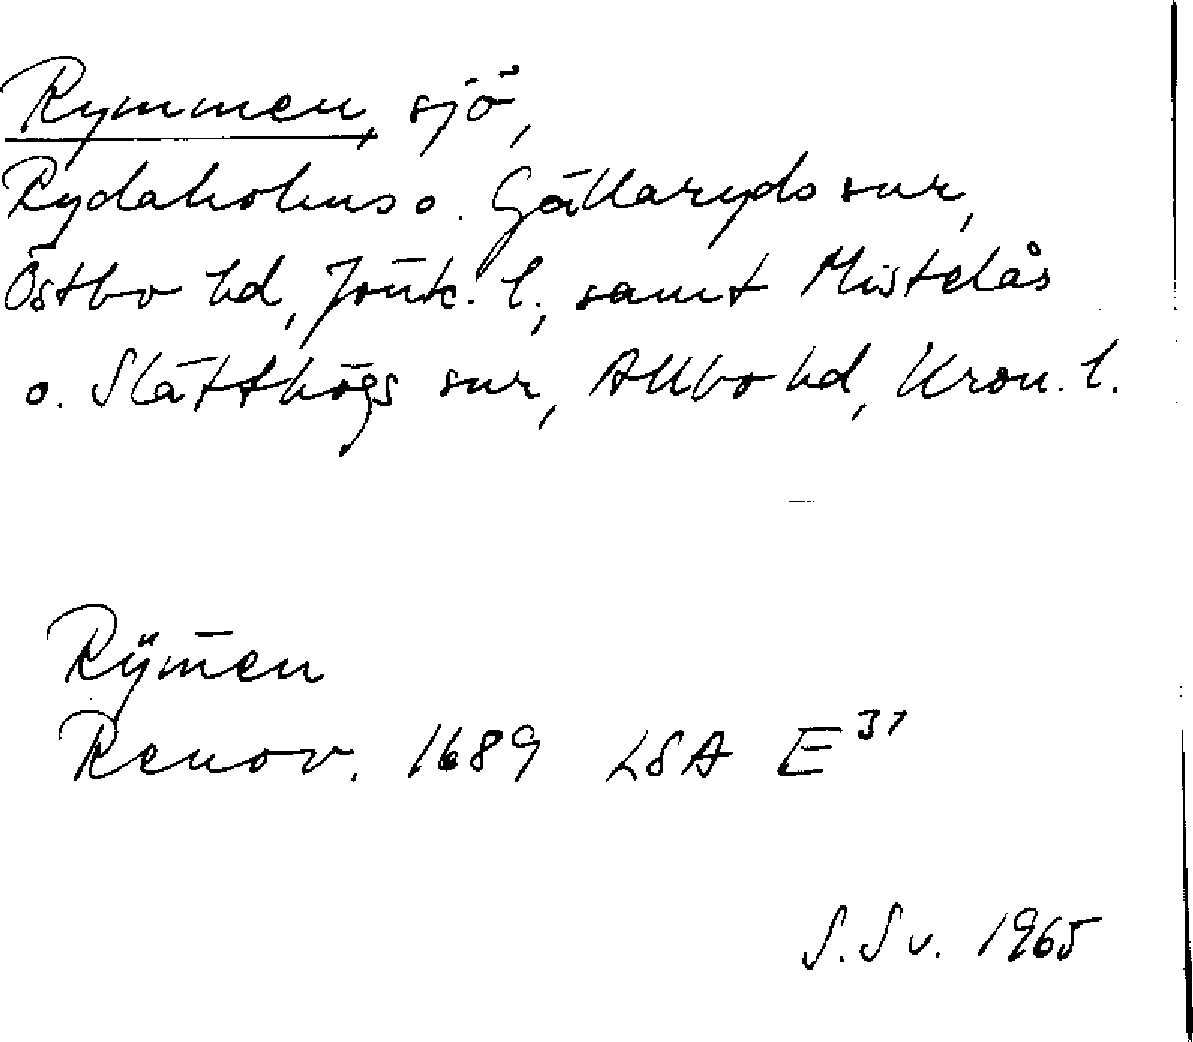 Rymmen, sjö,
Rydaholms o. Gällaryds snr,
Östbo hd, Jönk. l., samt Mistelås
o. Slätthögs snr, Allbo hd, Kron. l.
Rÿm̄en
Renov. 1689 LSA E³⁷
S.Sv. 1965